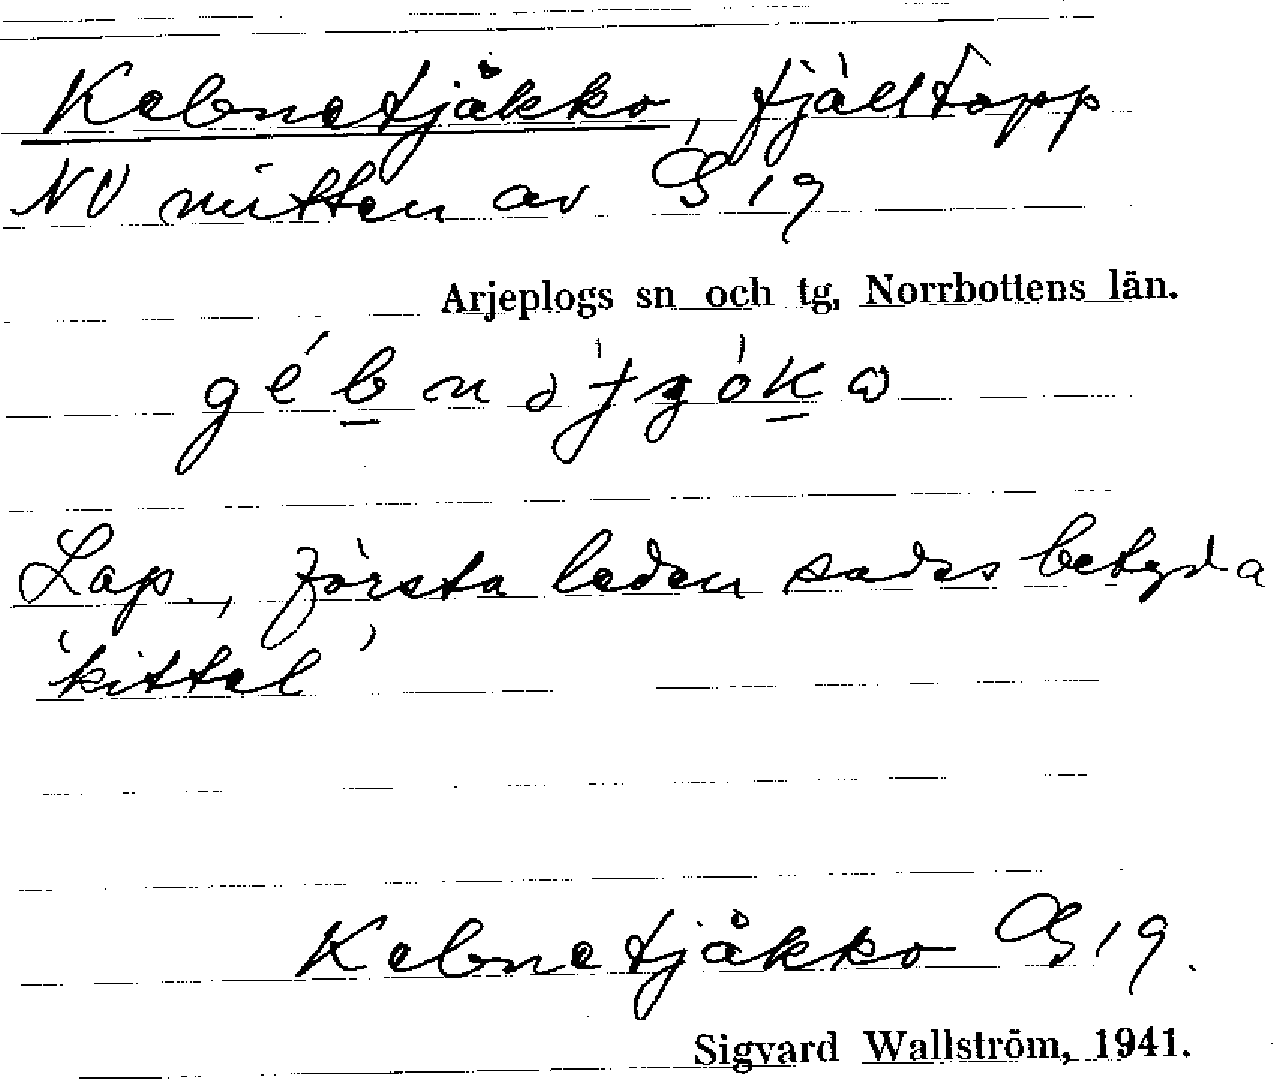 Kebnetjåkko, fjälltopp
NV mitten av G 19
Arjeplogs sn och tg, Norrbottens län.
Lap., första leden sades betyda
'kittel'
Kebnetjåkko G 19.
Sigvard Wallström, 1941.